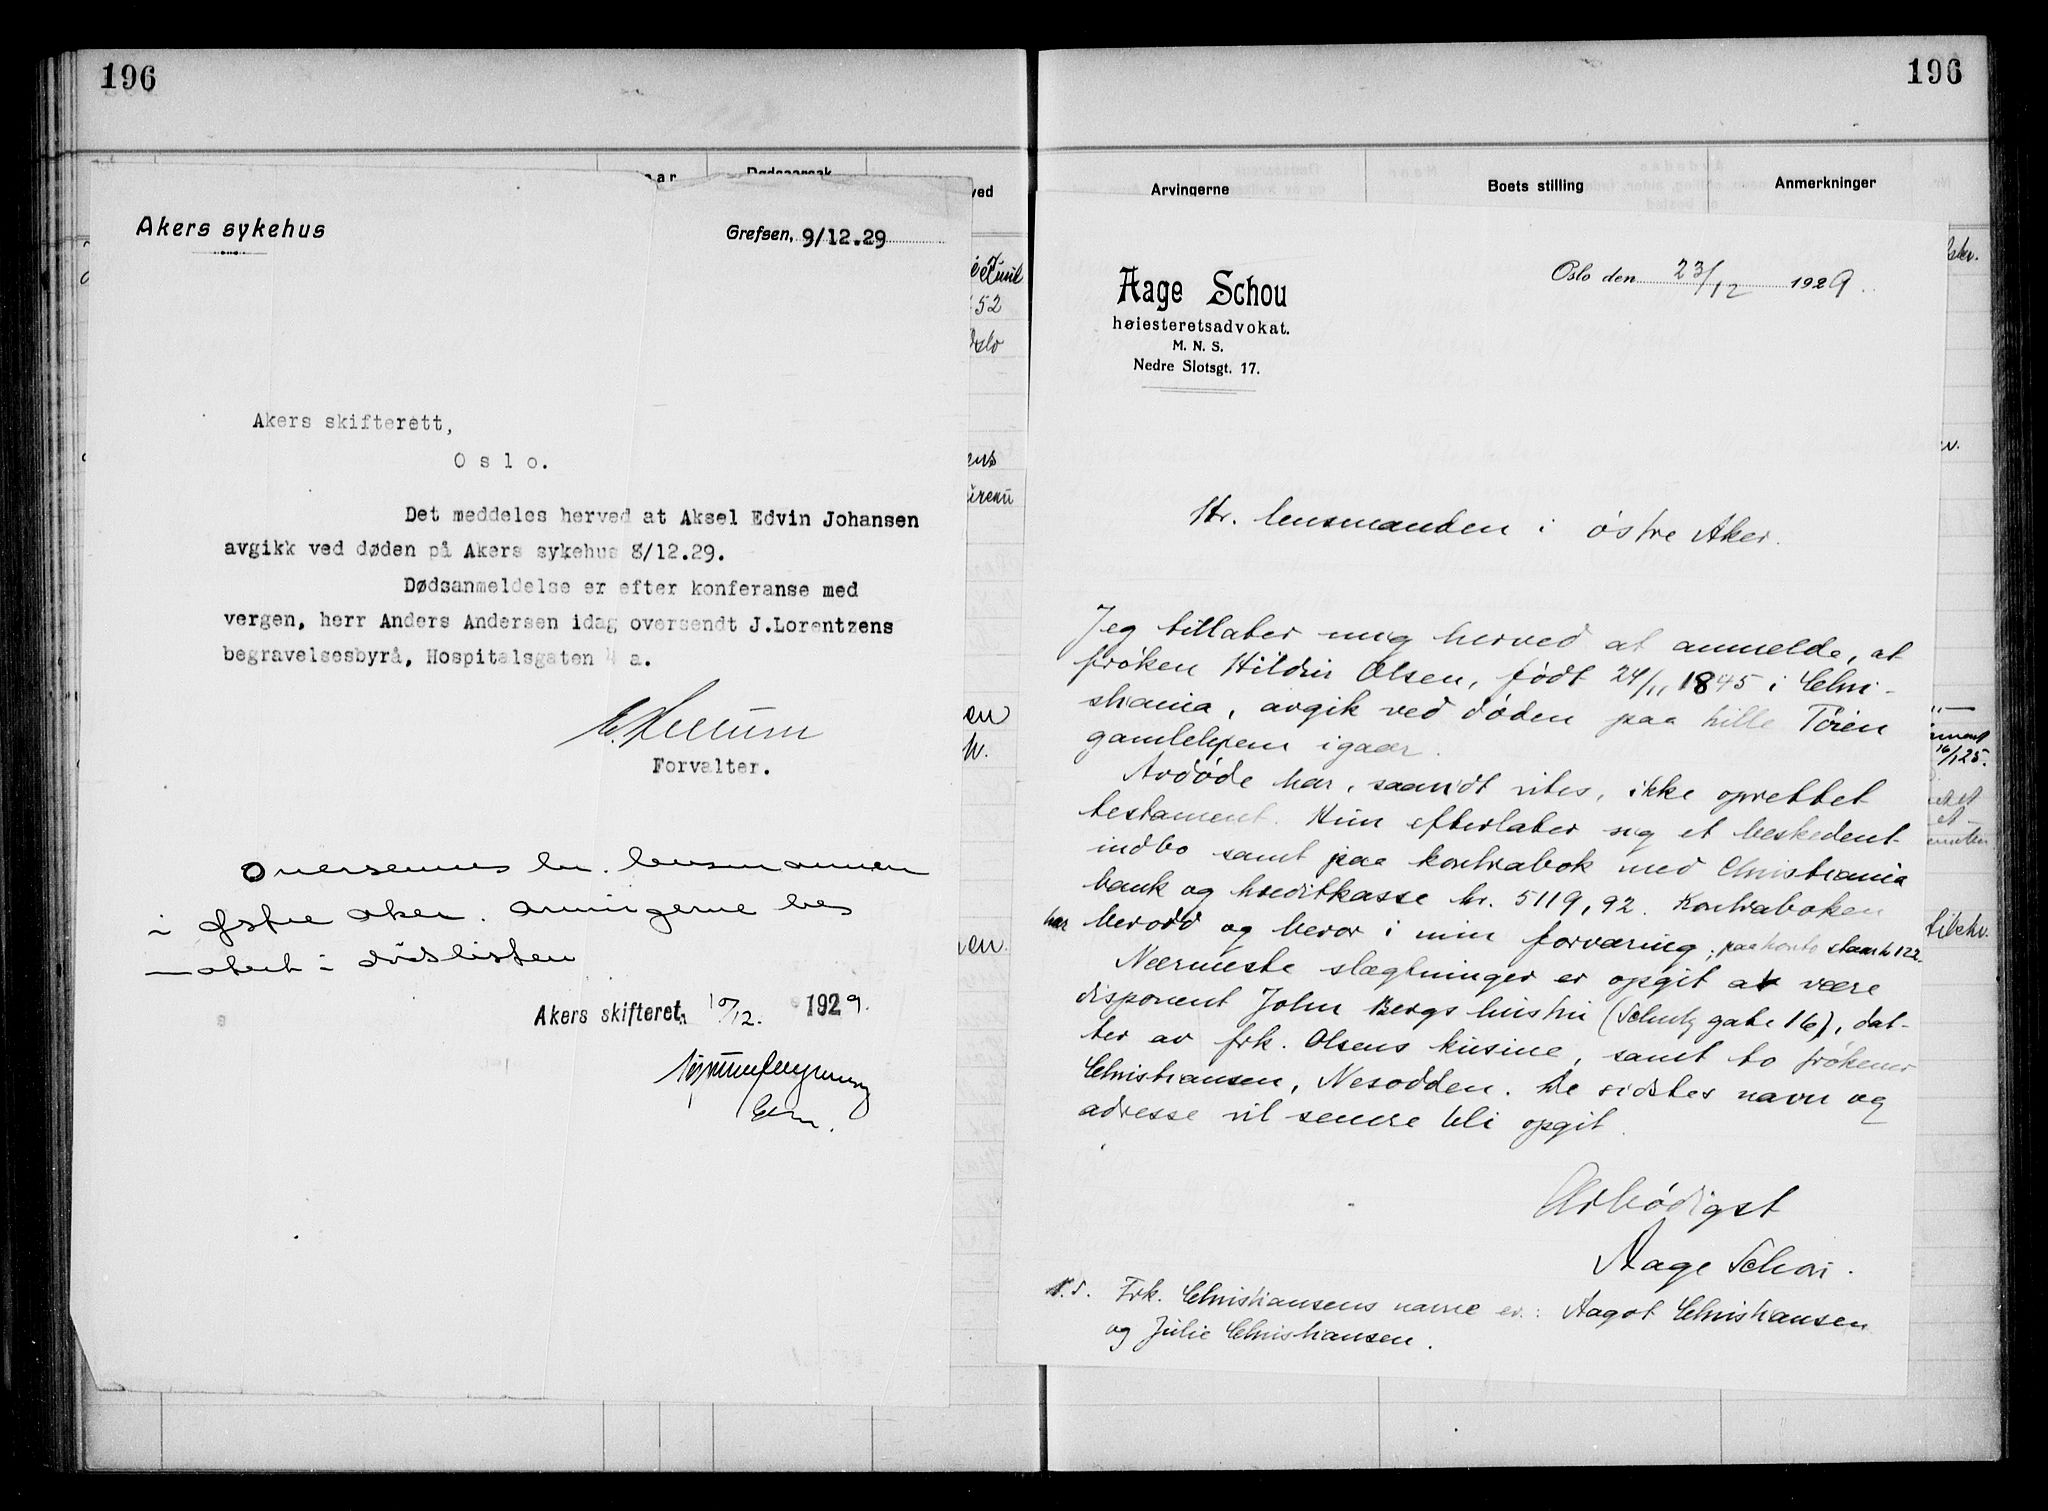 196
Akers sykehus
Grefsen, 9/12.29
Akers skifterett,
Oslo.
Det meddeles herved at Aksel Edvin Johansen
avgikk ved døden på Akers sykehus 8/12.29.
Dødsanmeldelse er efter konferanse med
vergen, herr Anders Andersen idag oversendt J.Lorentzens
begravelsesbyrå, Hospitalsgaten 4 a.
Forvalter.
Oversennes hr. lensmannen
i østre Aker. Arvingerne bes
notert i dødslisten
Akers skifterett, 10/12. 1929.
196
Arvingerne
Boets stilling
Anmerkninger
Oslo den 23/12 1929.
Aage Schou
høiesteretsadvokat.
M. N. S.
Nedre Slotsgt. 17.
Hr. lensmanden i østre Aker.
Jeg tillater mig herved at anmelde, at
frøken Hildur Olsen, født 24/11 1845 i Chri-
stiania, avgik ved døden paa lille Tøien
gamlehjem igaar.
Avdøde har, saavidt vites, ikke oprettet
testament. Hun efterlater sig et beskedent
indbo samt paa kontrabok med Christiania
bank og kreditkasse kr. 5119,92. Kontraboken
har berodd og beror i min forvaring; paa konto
Nærmeste slægtninger er opgit at være
disponent John Bergs hustru (Schultz gate 16), dat-
ter av frk. Olsens kusine, samt to frøkener
Christiansen, Nesodden. De sidstes navn og
adresse vil senere bli opgit.
Ærbødigst
Aage Schou.
P.S. Frk. Christiansens navne er: Aagot Christiansen
og Julie Christiansen.